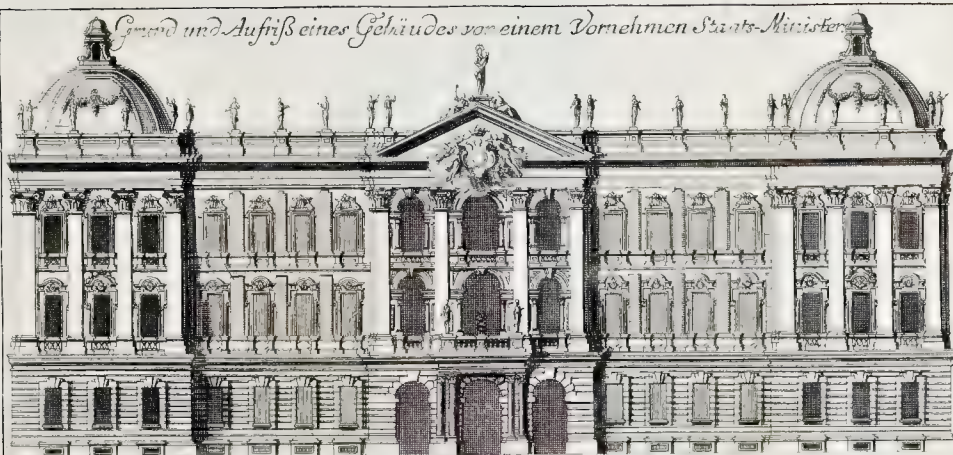 Grund und Aufriß eines Gebäudes vor einem Vornehmen Staats-Minister